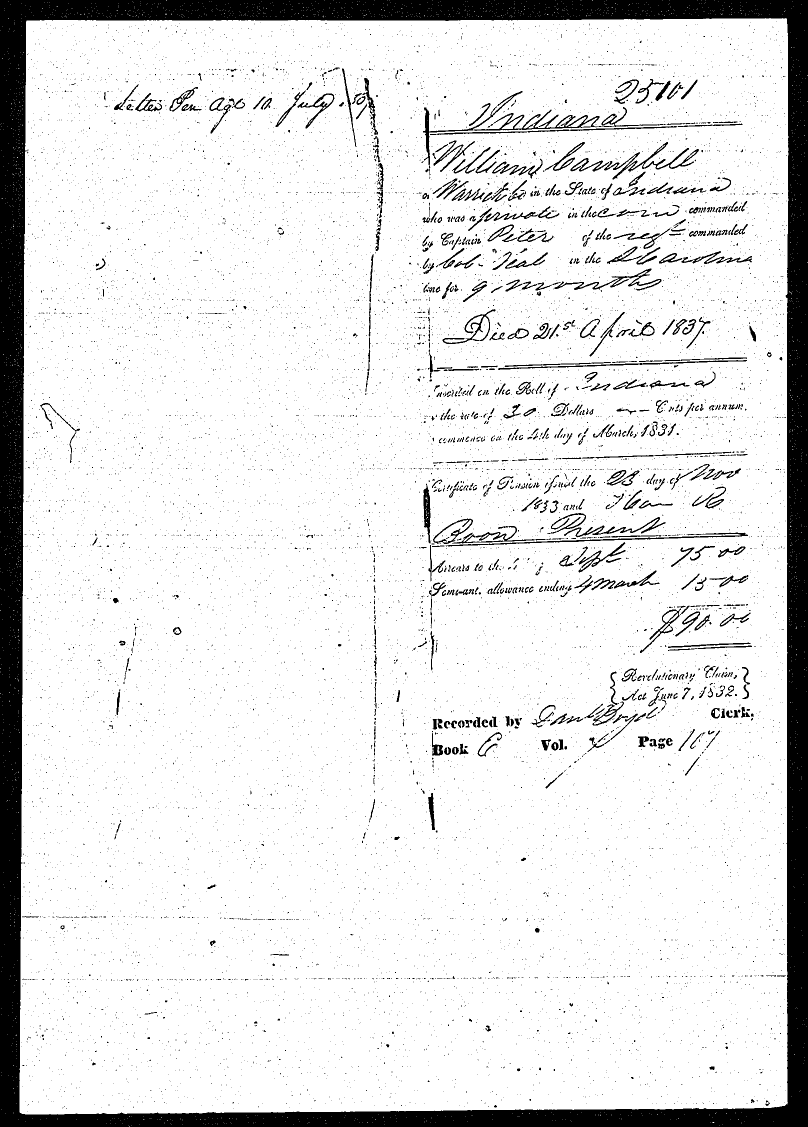 Letter Pen Agt 10 July
25101
Indiana
William Campbell
Warrick Co in the State of Indiana
who was a private in the com commanded
by Captain Peter of the regt commanded
by Col. Neal in the S Carolina
line for 9 months
Died 21.st April 1837.
Inscribed on the Roll of Indiana
the rate of 30 Dollars — Cents per annum,
commence on the 4th day of March, 1831.
Certificate of Pension issued the 23 day of Nov
1833 and Hon R
Boon Present
Arrears to the 4 Sept 75 00
Semi-ant. allowance ending 4 March 15 00
$90.00
Revolutionary Claim,
Act June 7, 1832.
Recorded by Danl Boyd Clerk,
Book E Vol. Page 107